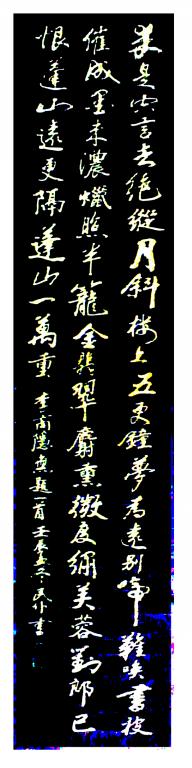 来是空言去绝踪月斜楼上五更钟梦为远别啼难唤书被
催成墨未浓蜡照半笼金翡翠麝熏微度绣芙蓉刘郎已
恨蓬山远更隔蓬山一万重李商隐无题一首壬辰孟冬